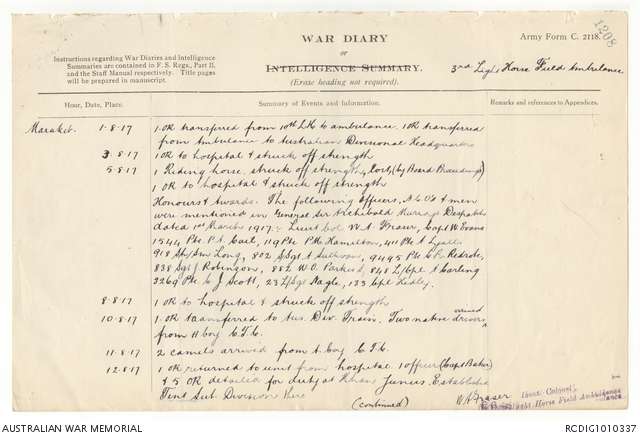 WAR DIARY
or
INTELLIGENCE SUMMARY.
(Erase heading not required).
Army Form C. 2118.
1208
Instructions regarding War Diaries and Intelligence
Summaries are contained in F. S. Regs., Part II.
and the Staff Manual respectively. Title pages
will be prepared in manuscript.
3rd Light Horse Field Ambulance
Hour, Date, Place. Summary of Events and Information. Remarks and references to Appendices.
Marakeb. 1-8-17 1 OR transferred from 10th LH to ambulance. 1 OR transferred
from Ambulance to Australian Divisional Headquarters
3-8-17 1 OR to hospital & struck off strength
5-8-17 1 Riding horse struck off strength, Lost, (by Board Proceedings)
1 OR to hospital & struck off strength
Honours & Awards. The following Officers, N.C.O's & men
were mentioned in General Sir Archibald Murrays Despatch
dated 1st March 1917:- Lieut Col W.A. Fraser, Capt W Evans
1544 Pte P.T. Cael, 119 Pte P.H. Hamilton, 411 Pte A Lyall
918 Long, 802 S/Sgt A Sullivan, 9495 Pte C.P. Redrobe,
838 Sgt J Robinson, 882 W.O. Parkes, 848 L/Cpl A Carling
3269 Pte C J Scott, 23 L/Sgt Nagle, 133 Cpl Hedley.
8-8-17 1 OR to hospital & struck off strength
10-8-17 1 OR transferred to Aus. Div. Train. Two native drivers arrived
from H Coy C.T.C.
11-8-17 2 camels arrived from A Coy C.T.C.
12-8-17 1 OR returned to unit from hospital 1 officer (Capt Baker)
& 5 OR detailed for duty at Khan Junus. Established
Tent Sub Division here
(continued)
WA Fraser
Lieut-Colonel
Light Horse Field Ambulance
AUSTRALIAN WAR MEMORIAL
RCDIG1010337